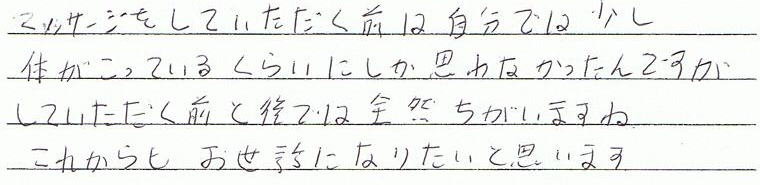 マッサージをしていただく前は自分では少し
体がこっているくらいにしか思わなかったんですが
していただく前と後では全然ちがいますね
これからも お世話になりたいと思います